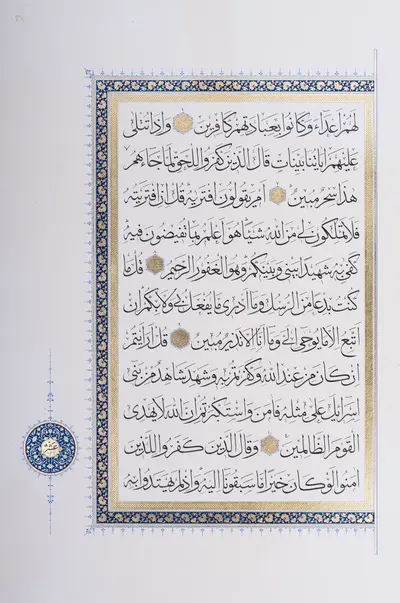 لهم اعداء وكانوا بعبادتهم كافرين واذا تتلى
عليهم اياتنا بينات قال الذين كفروا للحق لما جاءهم
هذا سحر مبين ام يقولون افتريه قل ان افتريته
فلا تملكون لى من الله شيئا هو اعلم بما تفيضون فيه
كفى به شهيدا بينى وبينكم وهو الغفور الرحيم قل ما
كنت بدعا من الرسل وما ادرى ما يفعل بى ولا بكم ان
اتبع الا ما يوحى الى وما انا الا نذير مبين قل ارايتم
ان كان من عند الله وكفرتم به وشهد شاهد من بنى
اسرائيل على مثله فامن واستكبرتم ان الله لا يهدى
القوم الظالمين وقال الذين كفروا للذين
امنوا لو كان خيرا ما سبقونا اليه واذ لم يهتدوا به